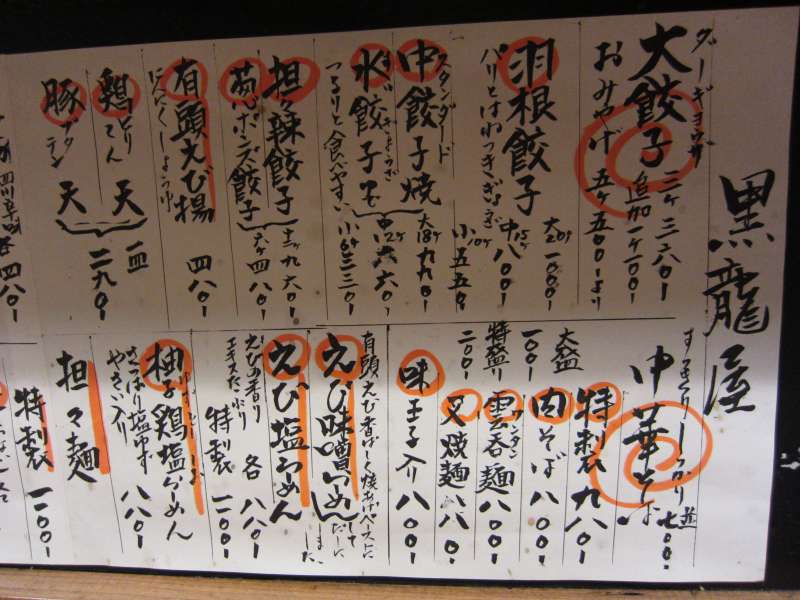 黒龍屋
ダーギョウザ
大餃子 三ケ 三八〇〇
追加 一ケ 一〇〇!
おみやげ 五ケ 五〇〇!より
羽根餃子
パリとはねつきぎょうざ
大20ケ 一〇〇〇!
中15ケ 八〇〇!
小10ケ 五五〇
スタンダード
中餃子焼
水餃子
すいぎょうざ
つるりと食べやすい
大18ケ 九九〇!
中12ケ 六六〇
小6ケ 三三〇!
担々辣餃子 十二ケ 九六〇!
葱ポンズ餃子 六ケ 四八〇!
有頭えび揚 四八〇!
にんにくしょうゆ
鶏天
とりてん
豚天
ブタテン
一皿 二九〇!
すっきりしっかり
中華そば 並 七〇〇!
特製 九八〇!
肉そば 八〇〇!
大盛 一〇〇!
雲呑麺 八〇〇!
ワンタン
特盛り 二〇〇!
叉焼麺 八八〇!
味玉子入り 八〇〇!
有頭えび香ばしく焼あげペーストにして
えび味噌らーめん
えび塩らーめん
えびの香り
エキスたっぷり
各 八八〇!
特製 一一〇〇!
柚子鶏塩らーめん
さっぱり塩ゆず
やさい入り
八八〇!
担々麺
特製 一一〇〇!
四八〇!